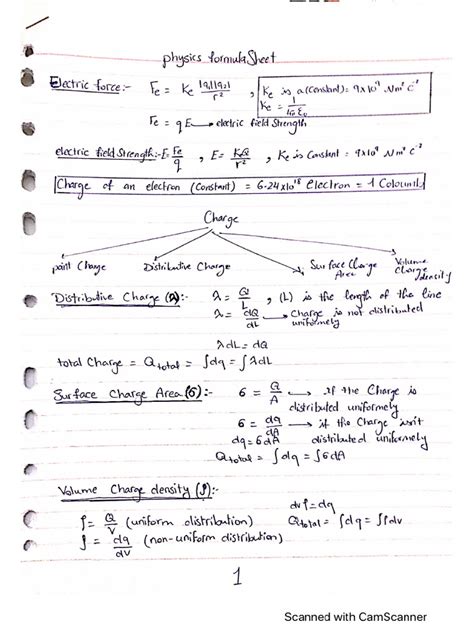 physics formula Sheet
Electric force:- Fe = Ke |q1||q2| / r² , Ke is a (constant) = 9x10⁹ Nm² c⁻²
Ke = 1 / 4π ε₀
Fe = qE → electric field strength
electric field Strength:- E = Fe / q , E = KQ / r² , Ke is Constant = 9x10⁹ Nm² c⁻²
Charge of an electron (constant) = 6.24x10¹⁸ electron = 1 Coloumb
Charge
point Charge Distributive Charge Surface Charge Area Volume Charge density
Distributive Charge (λ):- λ = Q / L , (L) is the length of the line
λ = dQ / dL → charge is not distributed uniformely
λdL = dQ
total Charge = Qtotal = ∫dq = ∫λdL
Surface Charge Area (σ):- σ = Q / A → if the Charge is distributed uniformely
σ = dq / dA → if the Charge isn't distributed uniformely
dq = σdA
Qtotal = ∫dq = ∫σdA
Volume Charge density (ρ):-
ρ = Q / V (uniform distribution) dvρ = dq
ρ = dq / dv (non-uniform distribution) Qtotal = ∫dq = ∫ρdv
1
Scanned with CamScanner